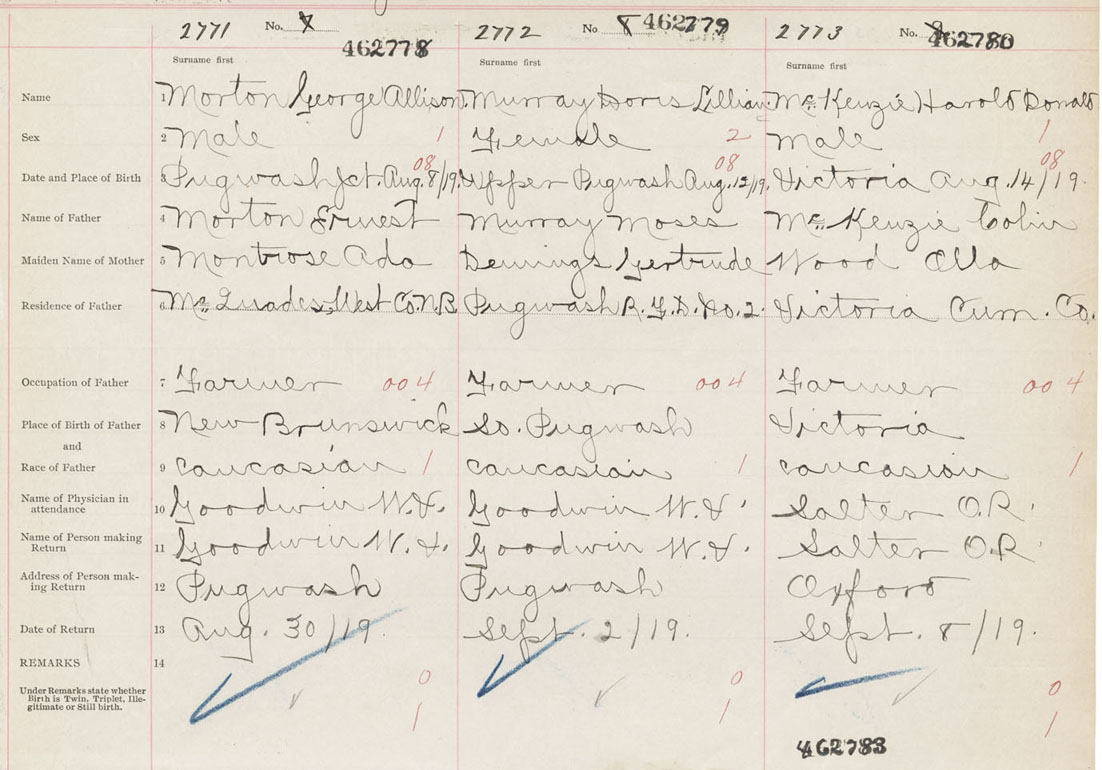 2771 No. 462778 2772 No 462779 2773 No. 462780
Surname first Surname first Surname first
Name 1 Morton George Allison Murray Doris Lillian Mc Kenzie Harold Donald
Sex 2 Male 1 Female 2 Male 1
08 08 08
Date and Place of Birth 3 Pugwash Jct. Aug. 8/19. Upper Pugwash Aug. 12/19. Victoria Aug. 14/19.
Name of Father 4 Morton Ernest Murray Moses Mc Kenzie Colin
Maiden Name of Mother 5 Montrose Ada Demings Gertrude Wood Ella
Residence of Father 6 West Co. N.B. Pugwash R. F. D. No. 2. Victoria Cum. Co.
Occupation of Father 7 Farmer 004 Farmer 004 Farmer 004
Place of Birth of Father 8 New Brunswick So. Pugwash Victoria
and
Race of Father 9 Caucasian 1 Caucasian 1 Caucasian 1
Name of Physician in
attendance 10 Goodwin W. Goodwin W. Salter O.R.
Name of Person making
Return 11 Goodwin W. Goodwin W. Salter O.R.
Address of Person mak-
ing Return 12 Pugwash Pugwash Oxford
Date of Return 13 Aug. 30/19. Sept. 2/19. Sept. 8/19.
REMARKS 14
Under Remarks state whether 0 0 0
Birth is Twin, Triplet, Ille-
gitimate or Still birth. 1 1 1
462783